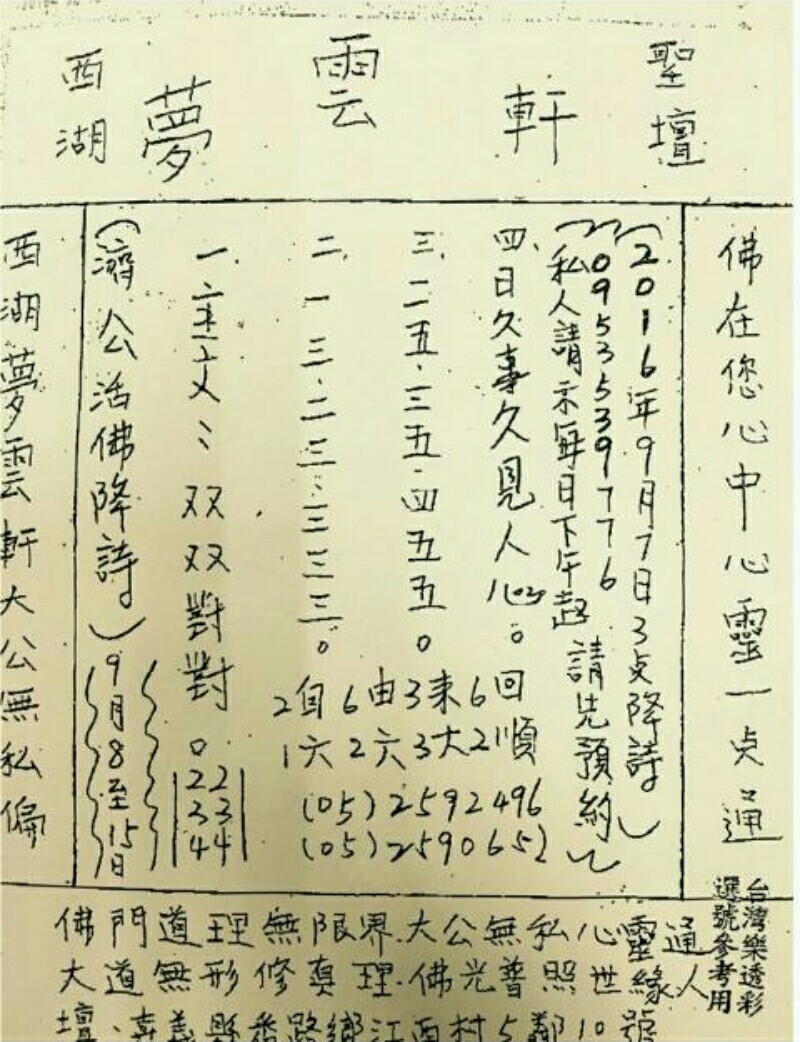 聖壇 軒雲夢 西湖
佛在您心中心靈一点通
(2016年9月7日3点降詩)
(0953539776
私人請示每日下午起 請先預約)
四、日久喜久見人心。回順
三、二五、三五、四五五。
二、一三、二三、三三三。
一、主文：双双對對。
22
33
44
2自6由3来6回
1六2六3大2順
(05)2592496
(05)2590652
(濟公活佛降詩)
9月8至15日
西湖夢雲軒大公無私偏
台灣樂透彩
選號參考用
佛門道理無限界.大公無私心靈通
大道無形修真理.佛光普照世緣人
壇、嘉義縣番路鄉江西村5鄰10號